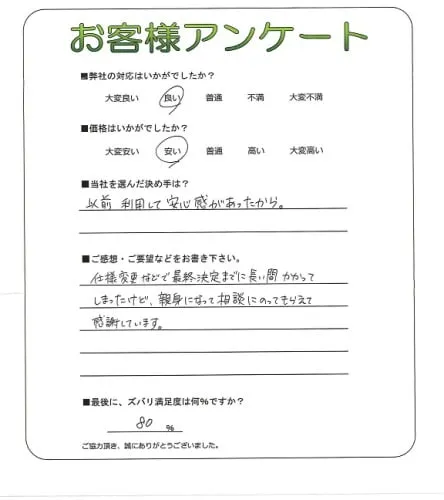 お客様アンケート
■弊社の対応はいかがでしたか？
大変良い 良い 普通 不満 大変不満
■価格はいかがでしたか？
大変安い 安い 普通 高い 大変高い
■当社を選んだ決め手は？
以前 利用して 安心感があったから。
■ご感想・ご要望などをお書き下さい。
仕様変更などで最終決定までに長い間かかって
しまったけど、親身になって相談にのってもらえて
感謝しています。
■最後に、ズバリ満足度は何%ですか？
80 %
ご協力頂き、誠にありがとうございました。